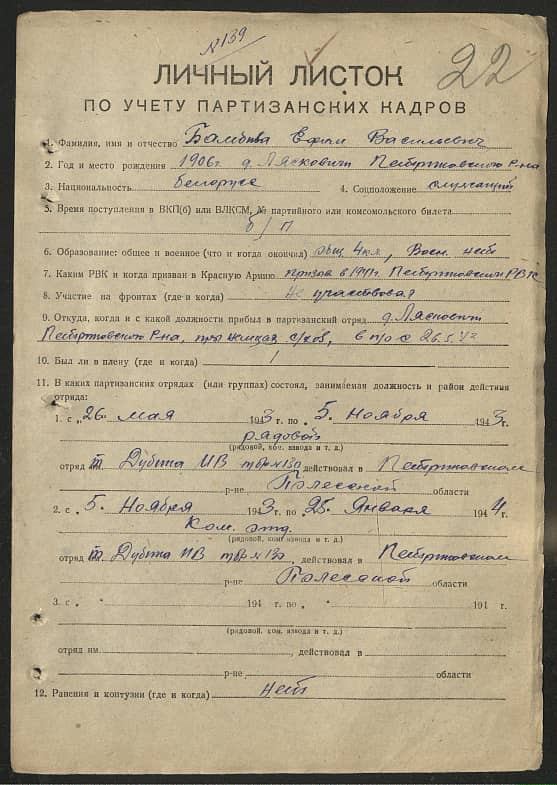 №139
22
ЛИЧНЫЙ ЛИСТОК
ПО УЧЕТУ ПАРТИЗАНСКИХ КАДРОВ
1. Фамилия, имя и отчество Ефим Васильевич
2. Год и место рождения 1906г д. Лясковичи Петриковского р-на
3. Национальность белорус 4. Соцположение служащий
5. Время поступления в ВКП(б) или ВЛКСМ, № партийного или комсомольского билета
б/п
6. Образование: общее и военное (что и когда окончил) общ 4 кл, Воен. нет
7. Каким РВК и когда призван в Красную Армию призван в 1941г. Петриковским РВК
8. Участие на фронтах (где и когда) Не участвовал
9. Откуда, когда и с какой должности прибыл в партизанский отряд д. Ляскович
Петриковского р-на, с/хоз, в п/о с 26.5.43
10. Был ли в плену (где и когда) /
11. В каких партизанских отрядах (или группах) состоял, занимаемая должность и район действия
отряда:
1. с „26 мая 1943 г. по „5. Ноября 1943 г.
рядовой
(рядовой, ком. взвода и т. д.)
отряд им. Дубина ИВ п/бр №130 действовал в Петриковском
р-не Полесской области
2. с „5. Ноября 1943 г. по „25. Января 1944 г.
Ком. отд.
(рядовой, ком. взвода и т. д.)
отряд им. Дубина ИВ п/бр №130, действовал в Петриковском
р-не Полесской области
3. с „ 194 г. по „ 194 г.
(рядовой, ком. взвода и т. д.)
отряд им. , действовал в
р-не области
12. Ранения и контузии (где и когда) нет